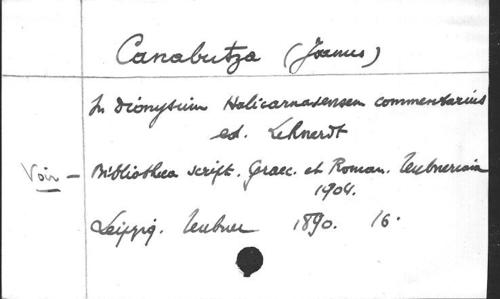 Canabutza (Joannes)
In Dionysium Halicarnasensem commentarius
ed. Lehnerdt
Voir - Bibliotheca script. Graec. et Roman. Teubneriana
1904.
Leipzig. Teubner 1890. 16.